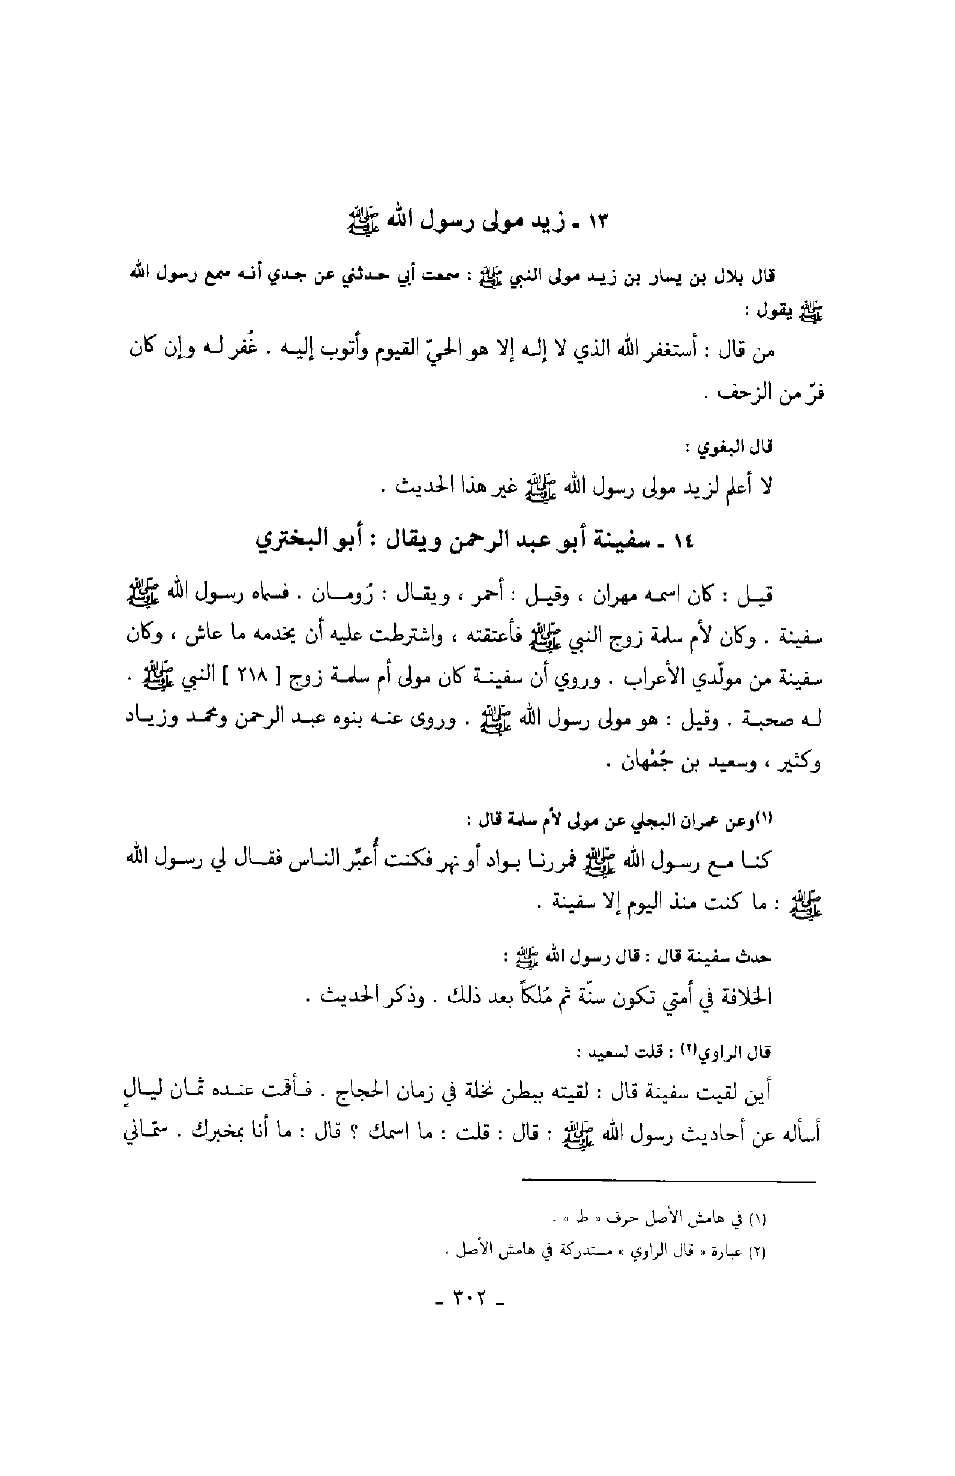 ١٣ ـ زيد مولى رسول الله ﷺ
قال بلال بن يسار بن زيد مولى النبي ﷺ : سمعت أبي حدثني عن جدي أنه سمع رسول الله
ﷺ يقول :
من قال : أستغفر الله الذي لا إله إلا هو الحيّ القيوم وأتوب إليه . غُفر له وإن كان
فرّ من الزحف .
قال البغوي :
لا أعلم لزيد مولى رسول الله ﷺ غير هذا الحديث .
١٤ ـ سفينة أبو عبد الرحمن ويقال : أبو البختري
قيل : كان اسمه مهران ، وقيل : أحمر ، ويقال : رُومان . فسماه رسول الله ﷺ
سفينة . وكان لأم سلمة زوج النبي ﷺ فأعتقته ، واشترطت عليه أن يخدمه ما عاش ، وكان
سفينة من مولّدي الأعراب . وروي أن سفينة كان مولى أم سلمة زوج [ ٢١٨ ] النبي ﷺ .
له صحبة . وقيل : هو مولى رسول الله ﷺ . وروى عنه بنوه عبد الرحمن ومحمد وزياد
وكثير ، وسعيد بن جُمْهان .
(١)وعن عمران البجلي عن مولى لأم سلمة قال :
كنا مع رسول الله ﷺ فمررنا بواد أو نهر فكنت أُعبّر الناس فقال لي رسول الله
ﷺ : ما كنت منذ اليوم إلا سفينة .
حدث سفينة قال : قال رسول الله ﷺ :
الخلافة في أمتي تكون سنّة ثم مُلكاً بعد ذلك . وذكر الحديث .
قال الراوي(٢) : قلت لسعيد :
أين لقيت سفينة قال : لقيته ببطن نخلة في زمان الحجاج . فأقمت عنده ثمان ليالٍ
أسأله عن أحاديث رسول الله ﷺ : قال : قلت : ما اسمك ؟ قال : ما أنا بمخبرك . سمّاني
(١) في هامش الأصل حرف « ط » .
(٢) عبارة « قال الراوي » مستدركة في هامش الأصل .
ـ ٣٠٢ ـ